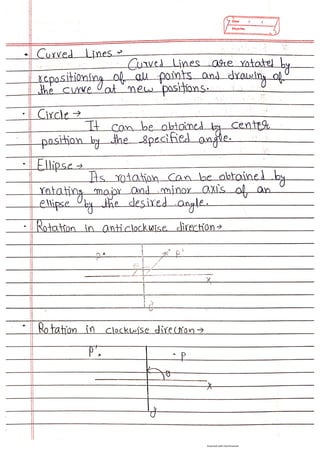 • Curved Lines →
Curved Lines are rotated by
repositioning of all points and drawing of
the curve at new positions.
• Circle →
It can be obtained by centre
position by the specified angle.
• Ellipse →
Its rotation can be obtained by
rotating major and minor axis of an
ellipse by the desired angle.
• Rotation in anticlockwise direction →
P'
X
y
• Rotation in clockwise direction →
P'. • P
θ
X
y